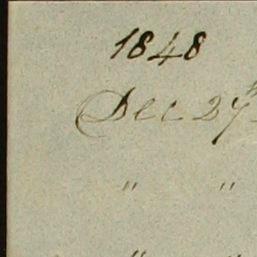 1848
Dec 27th
" "
" "